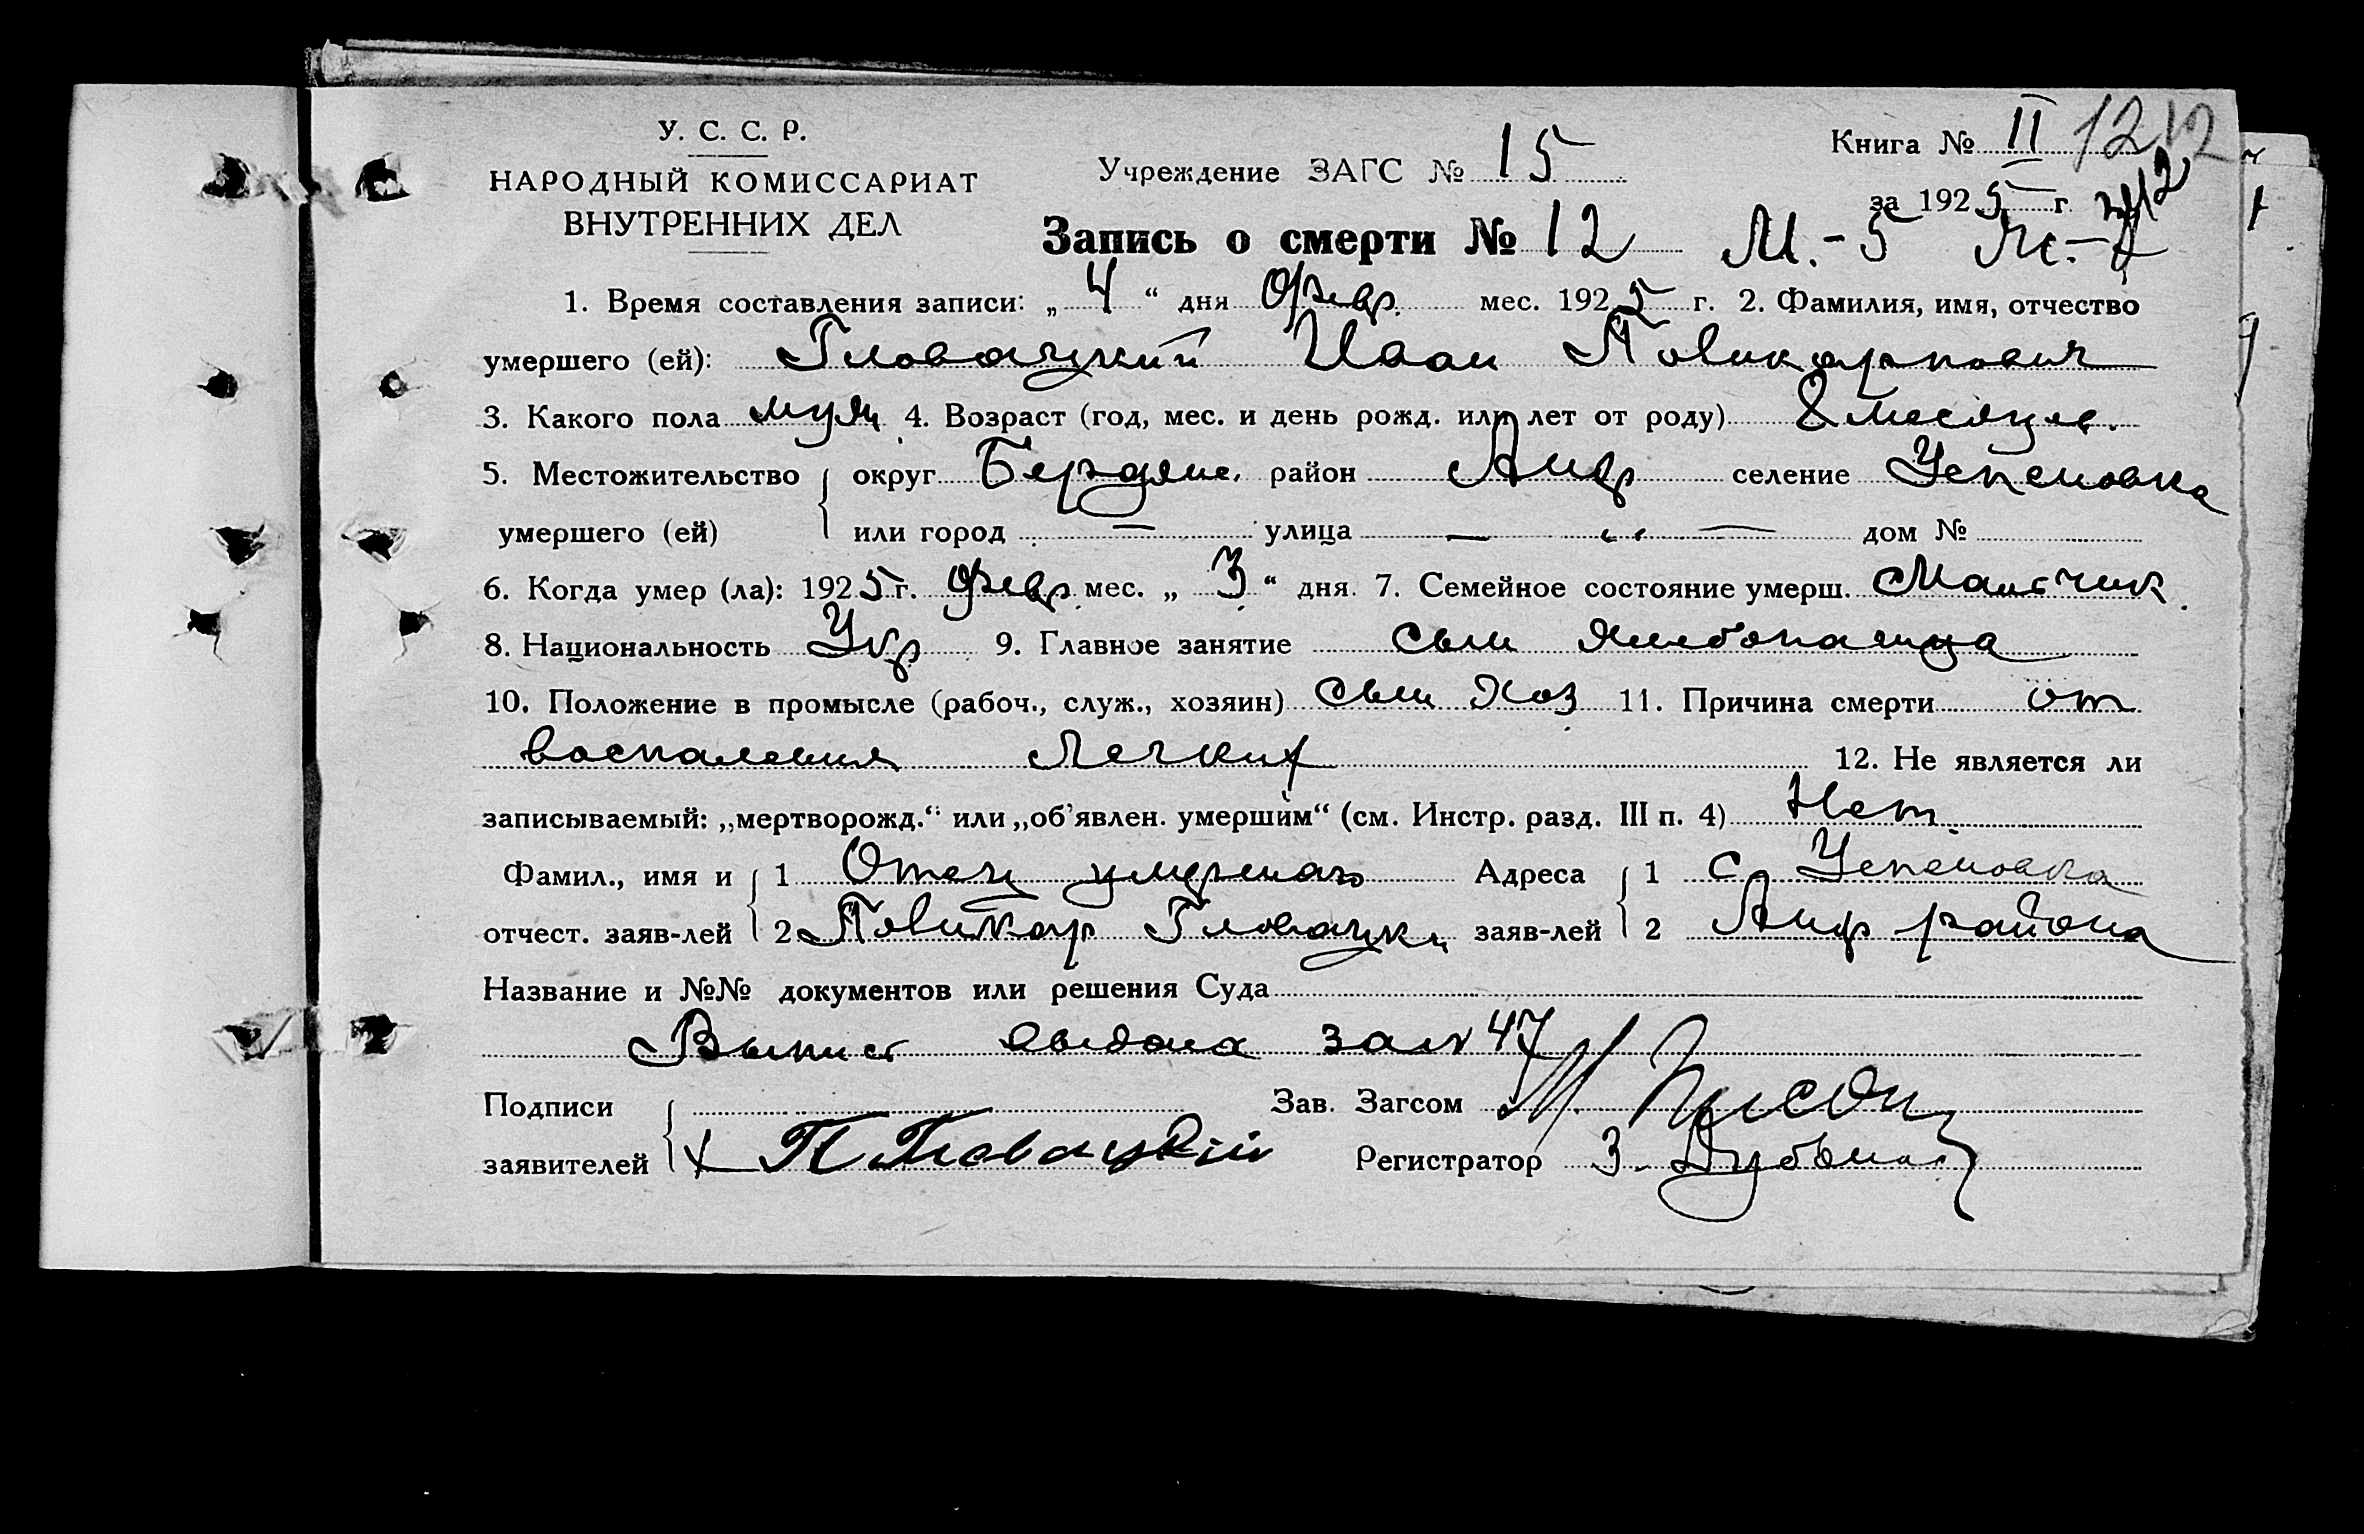 У. С. С. Р.
НАРОДНЫЙ КОМИССАРИАТ
ВНУТРЕННИХ ДЕЛ
Учреждение ЗАГС № 15
Книга № II 12 12
за 1925 г.
Запись о смерти № 12 М.-5
1. Время составления записи: „4“ дня Февр. мес. 1925 г. 2. Фамилия, имя, отчество
умершего (ей): Гловацкий Иван Поликарпович
3. Какого пола муж. 4. Возраст (год, мес. и день рожд. или лет от роду) 8 месяцев.
5. Местожительство округ Бердянс. район Андр селение Успеновка
умершего (ей) или город — улица — „ — дом №
6. Когда умер (ла): 1925 г. Февр. мес. „3“ дня. 7. Семейное состояние умерш. Мальчик.
8. Национальность Укр 9. Главное занятие сын хлебопашца
10. Положение в промысле (рабоч., служ., хозяин) сын хоз 11. Причина смерти от
воспаления легких 12. Не является ли
записываемый: „мертворожд.“ или „об’явлен. умершим“ (см. Инстр. разд. III п. 4) Нет.
Фамил., имя и 1 Отец умершаго Адреса 1 с Успеновка
отчест. заяв-лей 2 Поликар Гловацки заяв-лей 2 Андр района
Название и №№ документов или решения Суда
Выпись выдана за № 47
Подписи Зав. Загсом
заявителей П Гловацкий Регистратор З. Дубона